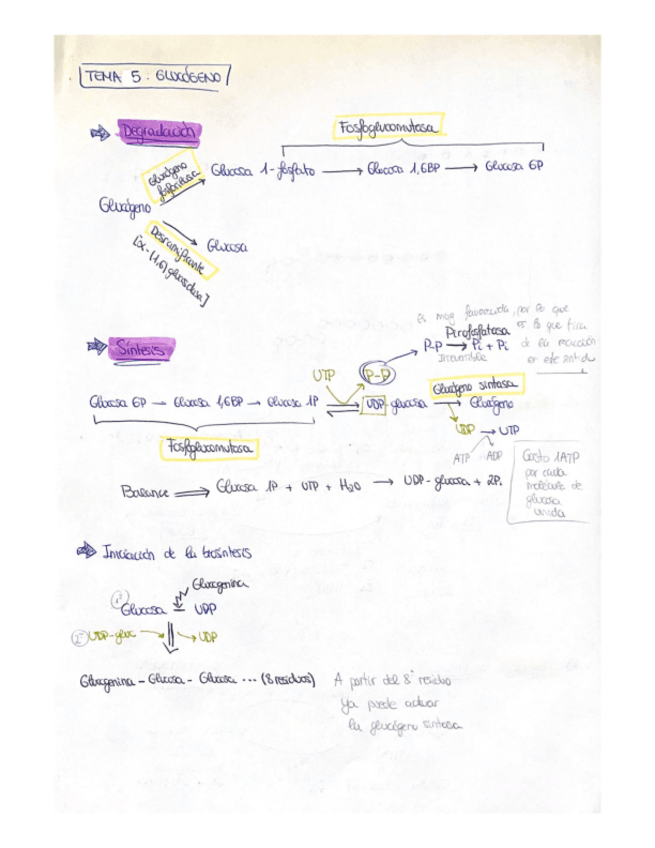 TEMA 5: GLUCÓGENO
Degradación
Fosfoglucomutasa
Glucógeno fosforilasa
Glucosa 1-fosfato → Glucosa 1,6BP → Glucosa 6P
Glucógeno
Glucosa
Desramificante
[α-(1,6) glucosidasa]
Es muy favorecida, por lo que
es lo que tira
de la reacción
en este sentido
Pirofosfatasa
Síntesis
P-P → Pi + Pi
Irreversible
UTP
P-P
Glucógeno sintasa
Glucosa 6P → Glucosa 1,6BP → Glucosa 1P ⇌ UDP-glucosa → Glucógeno
UDP → UTP
Fosfoglucomutasa
ATP ADP
Gasto 1ATP
por cada
molécula de
glucosa
unida
Balance ⇒ Glucosa 1P + UTP + H2O → UDP-glucosa + 2Pi
Iniciación de la biosíntesis
Glucogenina
1º Glucosa UDP
2º UDP-gluc → UDP
Glucogenina - Glucosa - Glucosa ... (8 residuos)
A partir del 8º residuo
ya puede actuar
la glucógeno sintasa